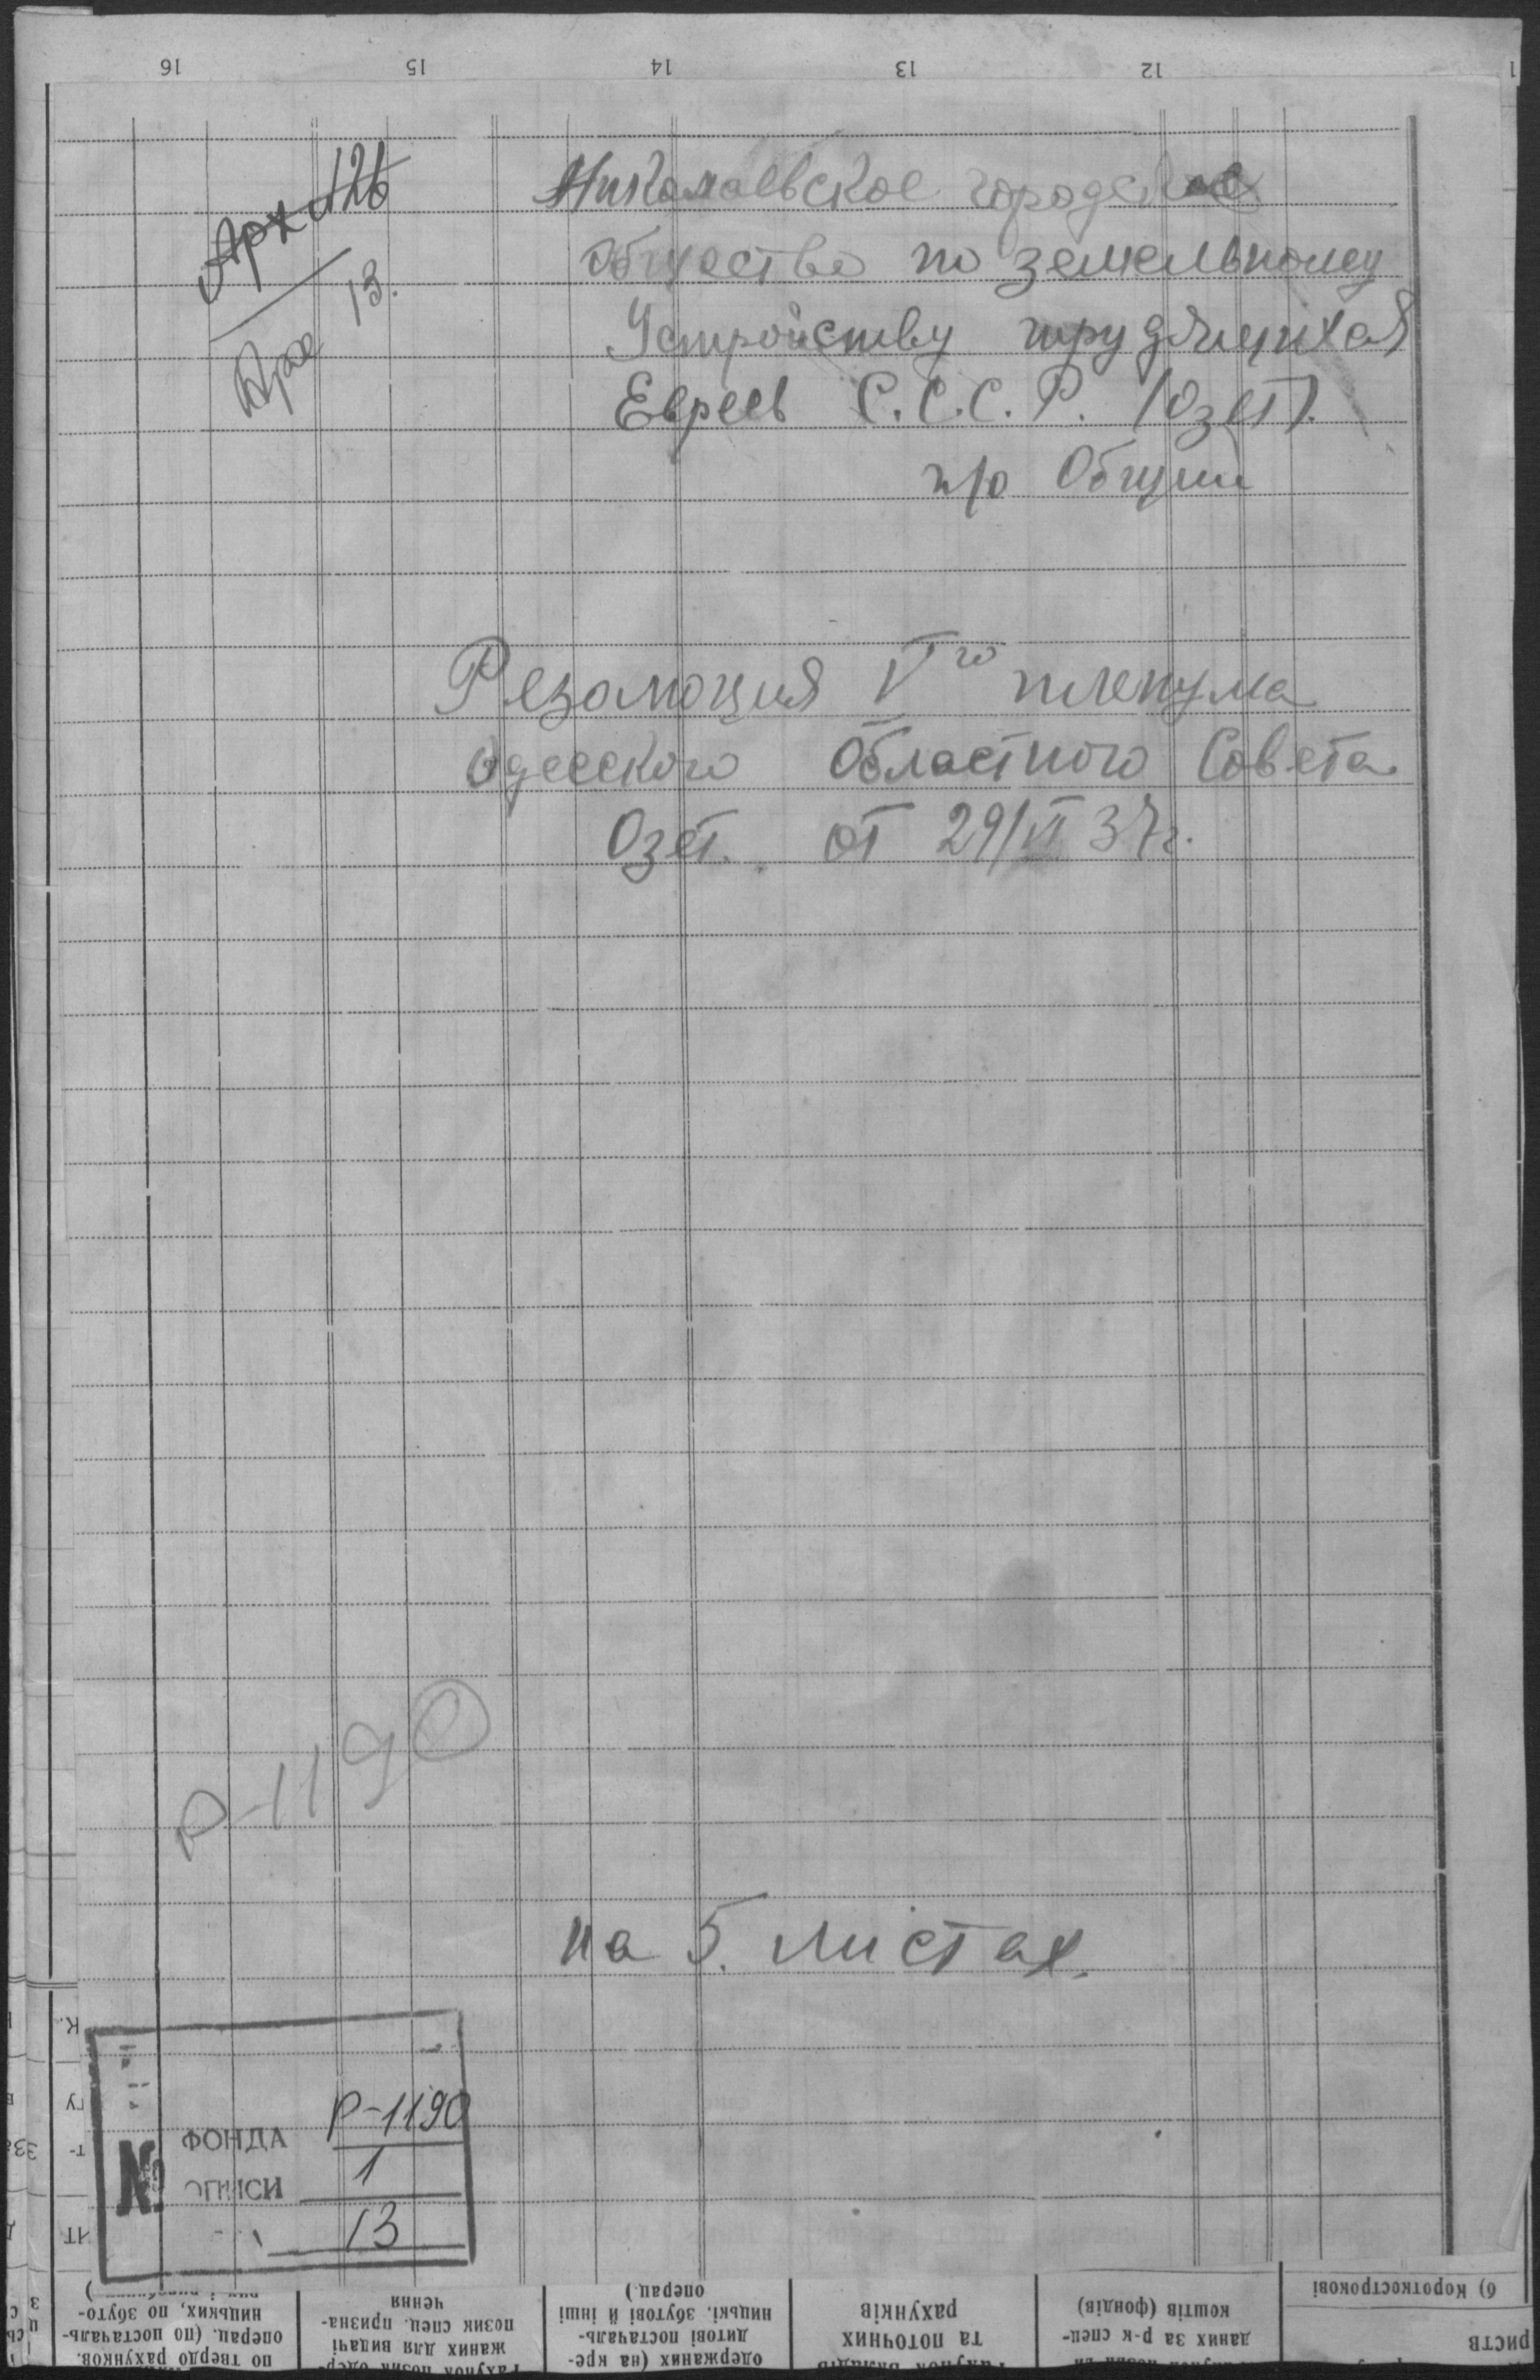 16 15 14 13 12 1
Арх №26
Арх 13.
Николаевское городское
Общество по земельному
Устройству трудящихся
Евреев С.С.С.Р. (Озет).
п/о Общий
Резолюция V го пленума
Одесского Областного Совета
Озет. от 29/VI 37г.
Р-1190
на 5. листах.
ФОНДА Р-1190
№ ОПИСИ 1
13
по твердо рахунков.
операц. (по постачаль-
ницьких, по збуто-
жаних для видачі
позик спец. призна-
чення
одержаних (на кре-
дитові постачаль-
ницькі, збутові й інші
операц.)
та поточних
рахунків
даних за р-к спец-
коштів (фондів)
риств
б) Короткострокові